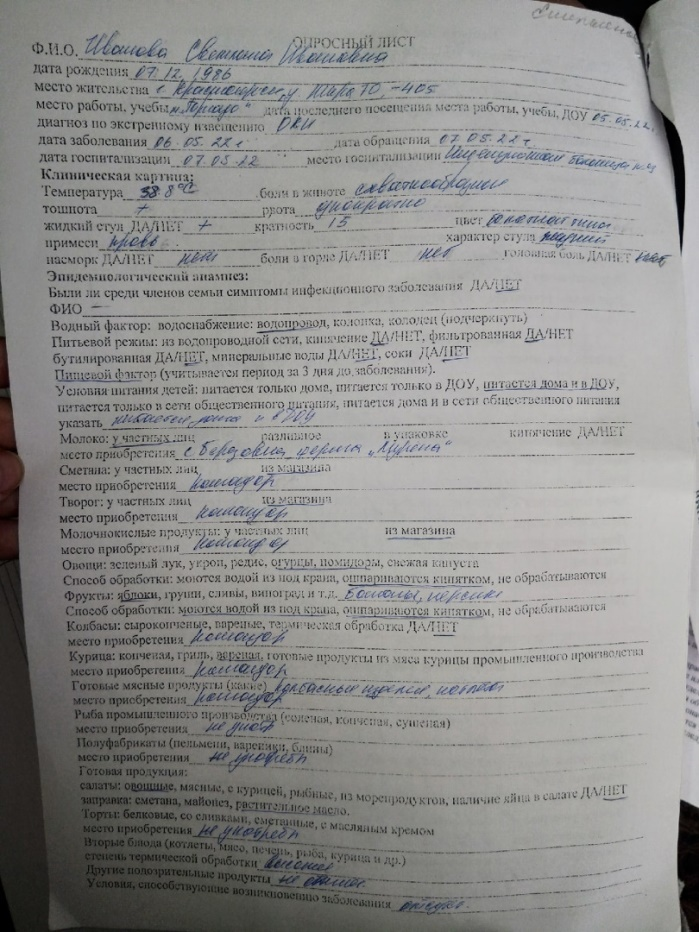 ОПРОСНЫЙ ЛИСТ
Ф.И.О. Иванова Светлана Ивановна
дата рождения 07.12.1986
место жительства с. Красноярск, у. 10-405
место работы, учебы дата последнего посещения места работы, учебы, ДОУ 05.05.22г.
диагноз по экстренному извещению ОКИ
дата заболевания 06.05.22г дата обращения 07.05.22г
дата госпитализации 07.05.22 место госпитализации больница
Клиническая картина:
Температура 38.8°С боли в животе схваткообразные
тошнота + рвота однократно
жидкий стул ДА/НЕТ + кратность 15 цвет
примеси кровь характер стула жидкий
насморк ДА/НЕТ нет боли в горле ДА/НЕТ нет головная боль ДА/НЕТ нет
Эпидемиологический анамнез:
Были ли среди членов семьи симптомы инфекционного заболевания ДА/НЕТ
ФИО —
Водный фактор: водоснабжение: водопровод, колонка, колодец (подчеркнуть)
Питьевой режим: из водопроводной сети, кипячение ДА/НЕТ, фильтрованная ДА/НЕТ
бутилированная ДА/НЕТ, минеральные воды ДА/НЕТ, соки ДА/НЕТ
Пищевой фактор (учитывается период за 3 дня до заболевания).
Условия питания детей: питается только дома, питается только в ДОУ, питается дома и в ДОУ,
питается только в сети общественного питания, питается дома и в сети общественного питания
указать питается дома и в ДОУ
Молоко: у частных лиц разливное в упаковке кипячение ДА/НЕТ
место приобретения с. ферма
Сметана: у частных лиц из магазина
место приобретения командор
Творог: у частных лиц из магазина
место приобретения командор
Молочнокислые продукты: у частных лиц из магазина
место приобретения командор
Овощи: зеленый лук, укроп, редис, огурцы, помидоры, свежая капуста
Способ обработки: моются водой из под крана, ошпариваются кипятком, не обрабатываются
Фрукты: яблоки, груши, сливы, виноград и т.д. бананы, персики
Способ обработки: моются водой из под крана, ошпариваются кипятком, не обрабатываются
Колбасы: сырокопченые, вареные, термическая обработка ДА/НЕТ
место приобретения командор
Курица: копченая, гриль, вареная, готовые продукты из мяса курицы промышленного производства
место приобретения командор
Готовые мясные продукты (какие) колбасные изделия,
место приобретения командор
Рыба промышленного производства (соленая, копченая, сушеная)
место приобретения не употр
Полуфабрикаты (пельмени, вареники, блины)
место приобретения не употребл
Готовая продукция:
салаты: овощные, мясные, с курицей, рыбные, из морепродуктов, наличие яйца в салате ДА/НЕТ
заправка: сметана, майонез, растительное масло.
Торты: белковые, со сливками, сметанные, с масляным кремом
место приобретения не употребл
Вторые блюда (котлеты, мясо, печень, рыба, курица и др.)
степень термической обработки высокая
Другие подозрительные продукты не
Условия, способствующие возникновению заболевания